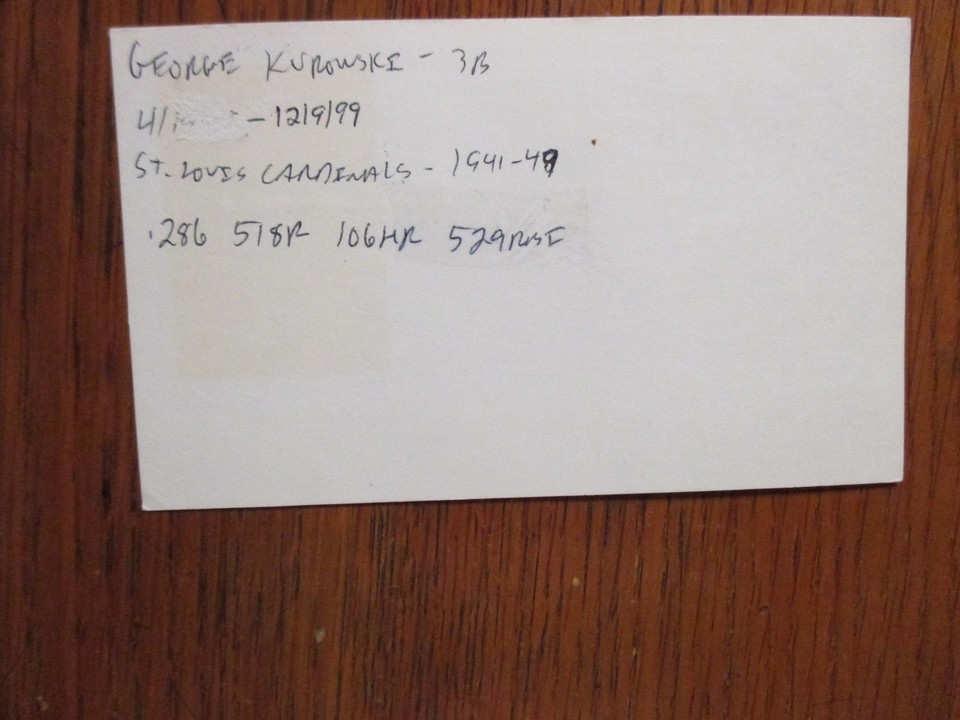 GEORGE KUROWSKI - 3B
4/1 - 12/9/99
ST. LOUIS CARDINALS - 1941-49
.286 518R 106HR 529RBI